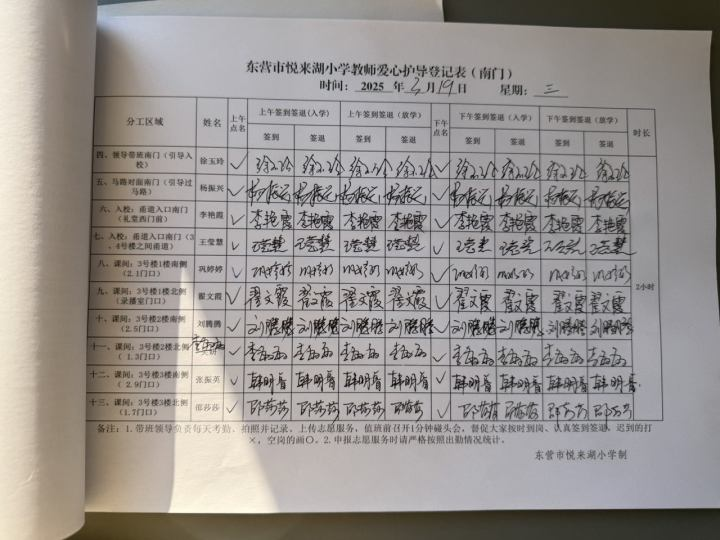 东营市悦来湖小学教师爱心护导登记表（南门）
时间： 2025 年 3 月 19 日 星期： 三
分工区域 姓名 上午点名 上午签到签退（入学） 上午签到签退（放学） 下午点名 下午签到签退（入学） 下午签到签退（放学） 时长
签到 签退 签到 签退 签到 签退 签到 签退
四、领导带班南门（引导入校） 徐玉玲 ✓ 徐玉玲 徐玉玲 徐玉玲 徐玉玲 ✓ 徐玉玲 徐玉玲 徐玉玲 徐玉玲
五、马路对面南门（引导过马路） 杨振兴 ✓ 杨振兴 杨振兴 杨振兴 杨振兴 ✓ 杨振兴 杨振兴 杨振兴 杨振兴
六、入校：甬道入口南门（礼堂西门前） 李艳霞 ✓ 李艳霞 李艳霞 李艳霞 李艳霞 ✓ 李艳霞 李艳霞 李艳霞 李艳霞
七、入校：甬道入口南门（3、4号楼之间甬道） 王莹慧 ✓ 王莹慧 王莹慧 王莹慧 王莹慧 ✓ 王莹慧 王莹慧 王莹慧 王莹慧
八、课间：3号楼1楼南侧（2.1门口） 巩婷婷 ✓ 巩婷婷 巩婷婷 巩婷婷 巩婷婷 ✓ 巩婷婷 巩婷婷 巩婷婷 巩婷婷
2小时
九、课间：3号楼1楼北侧（录播室门口） 翟文霞 ✓ 翟文霞 翟文霞 翟文霞 翟文霞 ✓ 翟文霞 翟文霞 翟文霞 翟文霞
十、课间：3号楼2楼南侧（2.5门口） 刘腾腾 ✓ 刘腾腾 刘腾腾 刘腾腾 刘腾腾 ✓ 刘腾腾 刘腾腾 刘腾腾 刘腾腾
十一、课间：3号楼2楼北侧（1.3门口） ✓ ✓
十二、课间：3号楼3楼南侧（2.9门口） 张振英 ✓ 韩明春 韩明春 韩明春 韩明春 ✓ 韩明春 韩明春 韩明春 韩明春
十三、课间：3号楼3楼北侧（1.7门口） 邵莎莎 ✓ 邵莎莎 邵莎莎 邵莎莎 邵莎莎 ✓ 邵莎莎 邵莎莎 邵莎莎 邵莎莎
备注：1.带班领导负责每天考勤、拍照并记录、上传志愿服务，值班前召开1分钟碰头会，督促大家按时到岗、认真签到签退，迟到的打
×，空岗的画〇。2.申报志愿服务时请严格按照出勤情况统计。
东营市悦来湖小学制